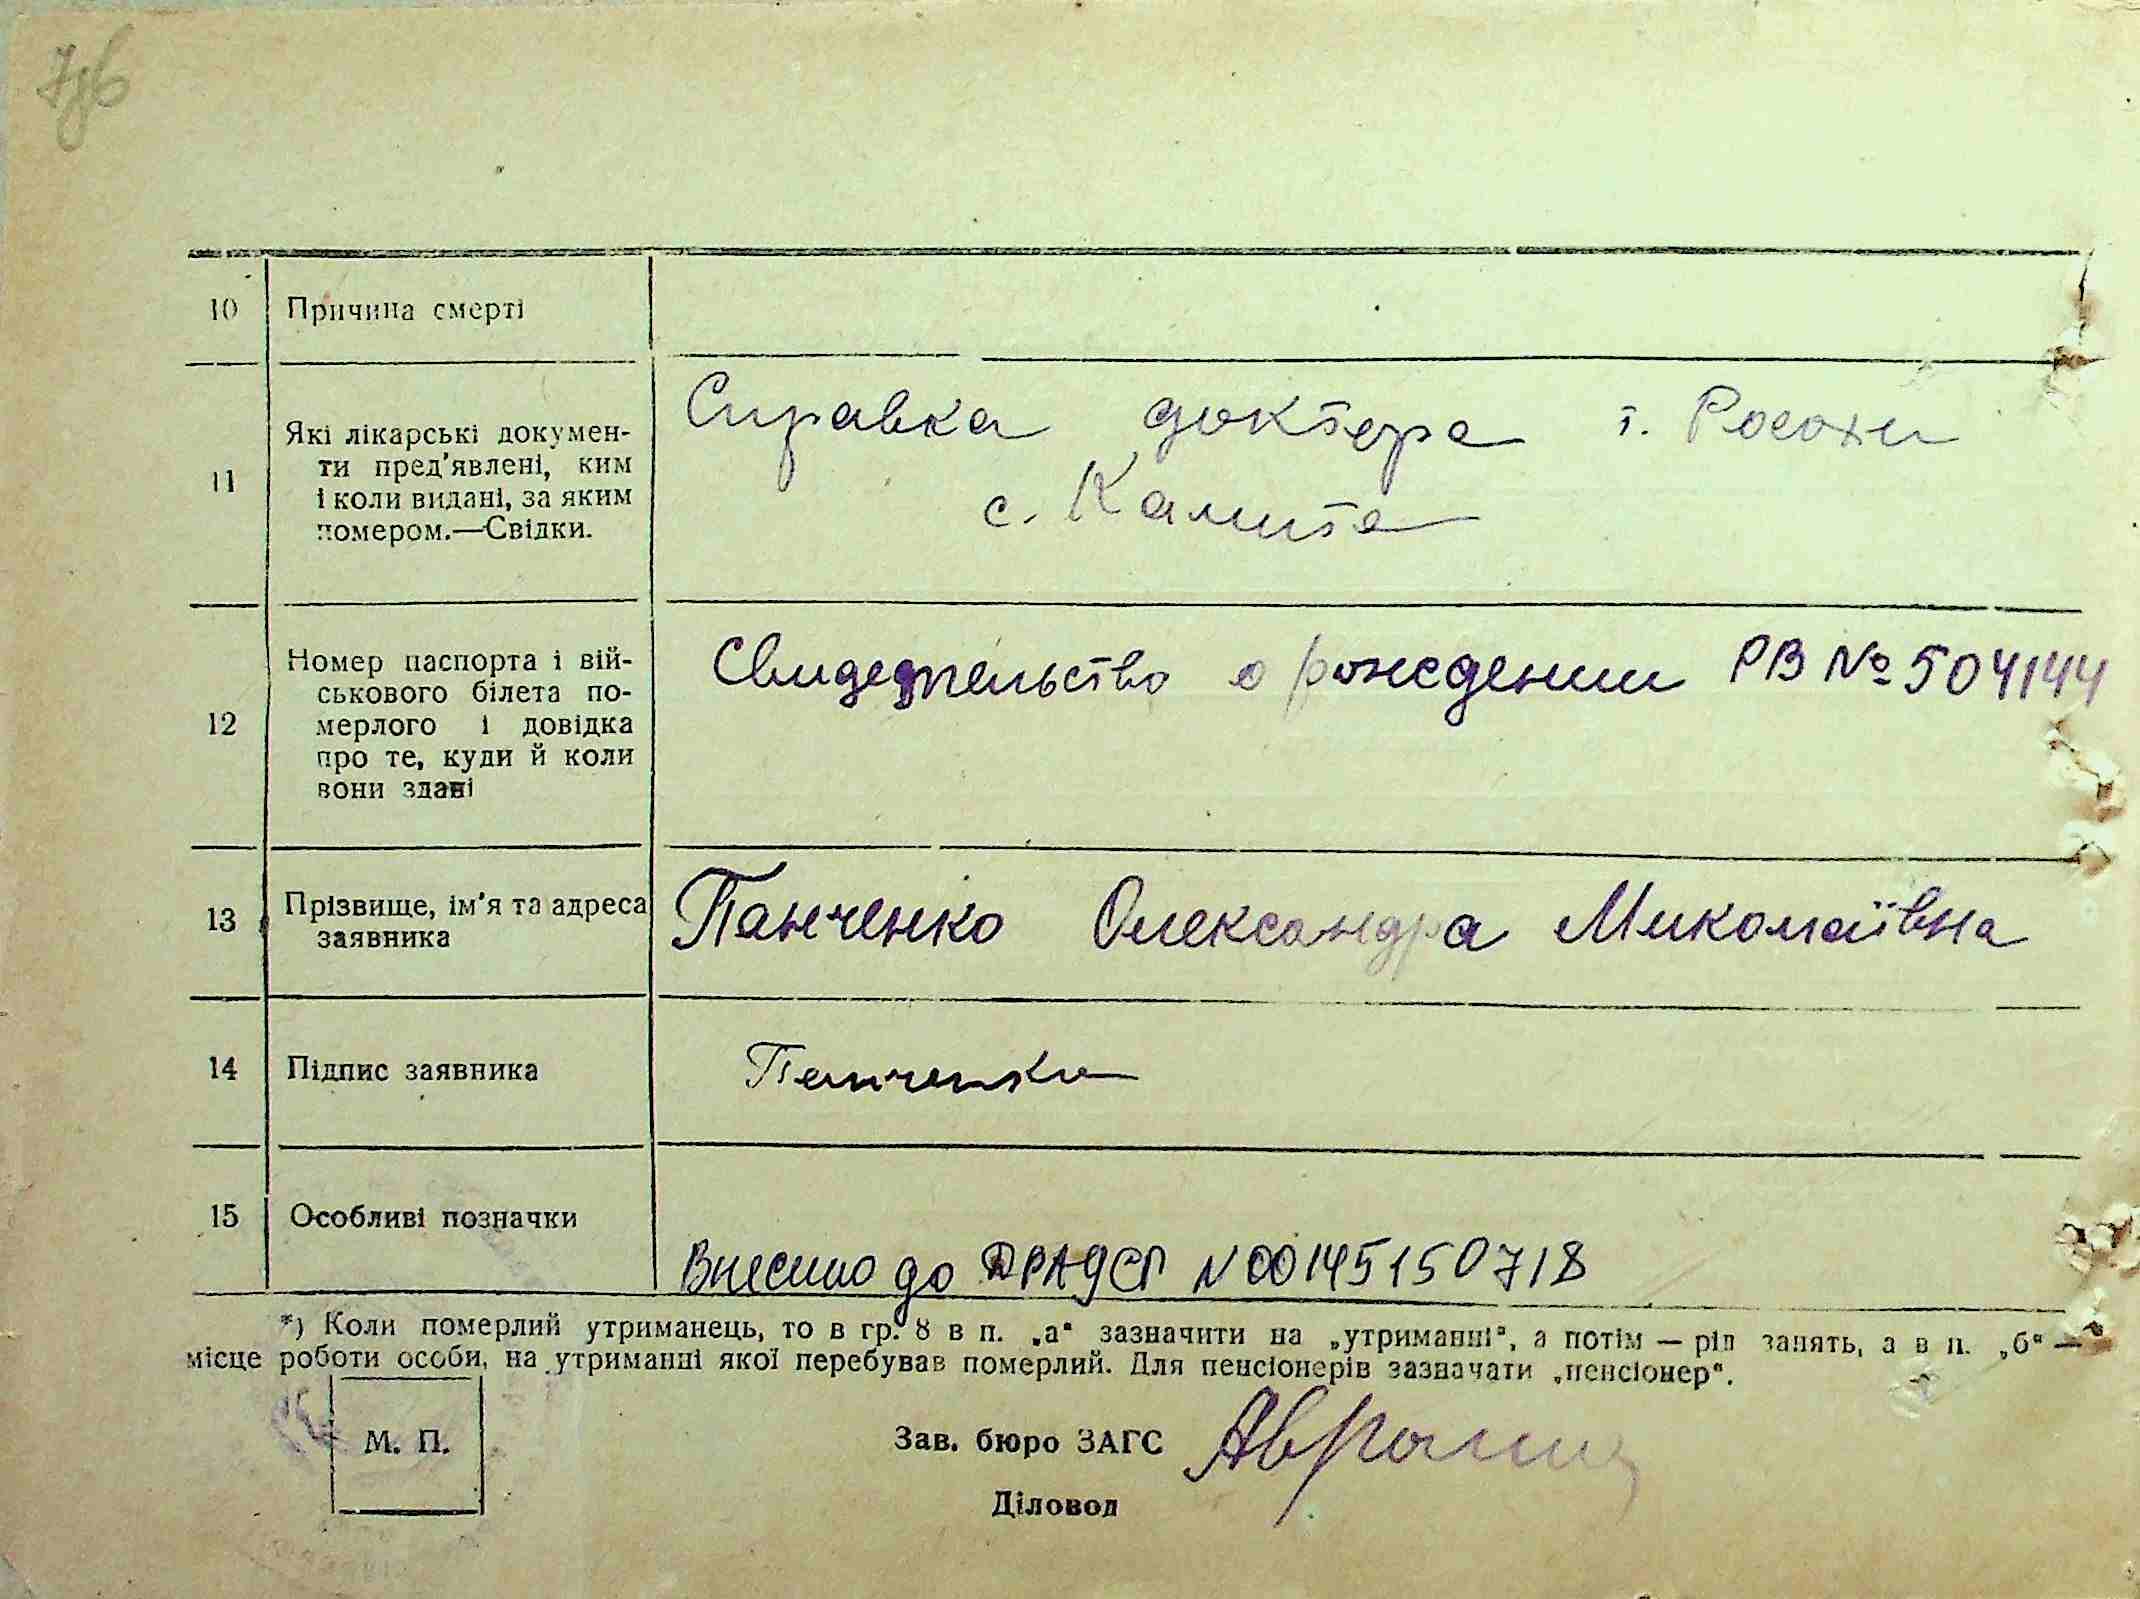 10 Причина смерті
11 Які лікарські докумен-
ти пред'явлені, ким
і коли видані, за яким
номером.—Свідки.
Справка доктера т.
с. Калита
12 Номер паспорта і вій-
ськового білета по-
мерлого і довідка
про те, куди й коли
вони здані
Свидетельство о рождении РВ № 504144
13 Прізвище, ім'я та адреса
заявника
Панченко Олександра Миколаївна
14 Підпис заявника
Панченко
15 Особливі позначки
Внесено до ДРАЦСГ N 00145150718
*) Коли померлий утриманець, то в гр. 8 в п. „а" зазначити на „утриманні", а потім — рід занять, а в п. „б" —
місце роботи особи, на утриманні якої перебував померлий. Для пенсіонерів зазначати „пенсіонер".
М. П.
Зав. бюро ЗАГС
Діловод